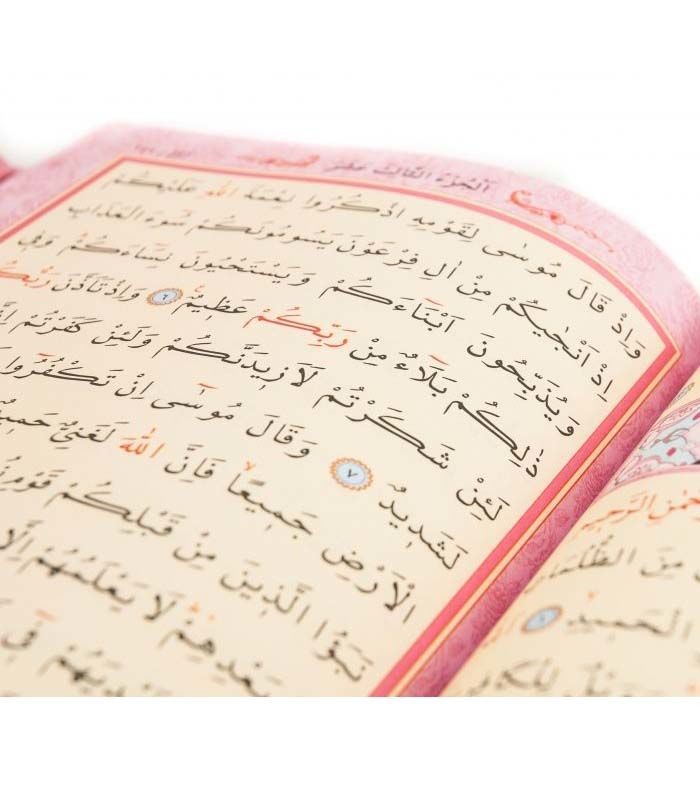 الجزء الثالث عشر
وَاِذْ قَالَ مُوسٰى لِقَوْمِهِ اذْكُرُوا نِعْمَةَ اللّٰهِ عَلَيْكُمْ
اِذْ اَنْجٰيكُمْ مِنْ اٰلِ فِرْعَوْنَ يَسُومُونَكُمْ سُٓوءَ الْعَذَابِ
وَيُذَبِّحُونَ اَبْنَٓاءَكُمْ وَيَسْتَحْيُونَ نِسَٓاءَكُمْ وَفٖي
ذٰلِكُمْ بَلَٓاءٌ مِنْ رَبِّكُمْ عَظٖيمٌ ٦ وَاِذْ تَاَذَّنَ
لَئِنْ شَكَرْتُمْ لَاَزٖيدَنَّكُمْ وَلَئِنْ كَفَرْتُمْ
لَشَدٖيدٌ ٧ وَقَالَ مُوسٰٓى اِنْ تَكْفُرُٓوا
الْاَرْضِ جَمٖيعًا فَاِنَّ اللّٰهَ لَغَنِيٌّ
نَبَؤُا الَّذٖينَ مِنْ قَبْلِكُمْ
بَعْدِهِمْ لَا يَعْلَمُهُمْ
فٖٓي
الرَّحٖيمِ
مِنَ الظُّلُمَاتِ
الْحَمٖيدِ